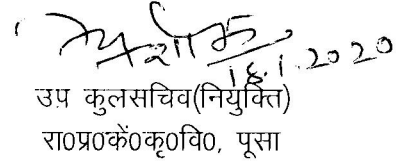 18.1.2020
उप कुलसचिव(नियुक्ति)
रा0प्र0कें0कृ0वि0, पूसा